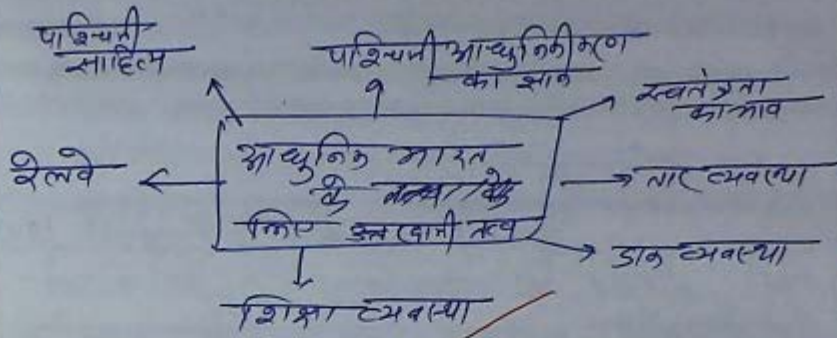 पाश्चिमी
साहित्य
पाश्चिमी आधुनिकीकरण
का ज्ञान
स्वतंत्रता
का भाव
रेलवे
आधुनिक भारत
के
लिए उत्तरदायी तत्व
तार व्यवस्था
डाक व्यवस्था
शिक्षा व्यवस्था